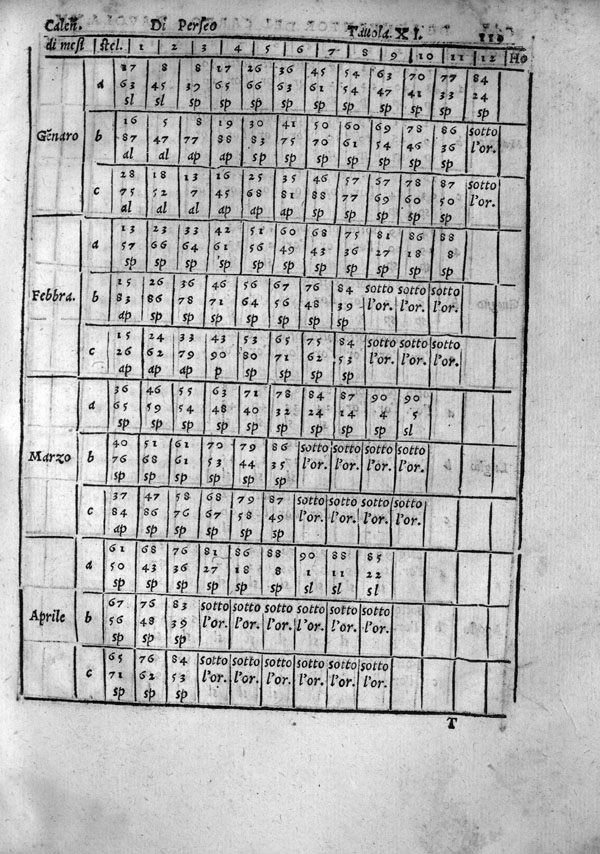 Calen. Di Perseo Tavola. XI.
di mesi stel. 1 2 3 4 5 6 7 8 9 10 11 12 Ho
17 8 8 17 26 36 45 54 63 70 77 84
a 63 45 39 65 66 63 61 54 47 41 33 24
sl sl sp sp sp sp sp sp sp sp sp sp
16 5 8 19 30 41 50 60 69 78 86 sotto
Gẽnaro b 87 47 77 88 83 75 70 61 54 46 36 l'or.
al al ap ap sp sp sp sp sp sp sp
28 18 13 16 25 35 46 57 67 78 87 sotto
c 75 52 7 45 68 81 88 77 69 60 50 l'or.
al al al ap ap ap ap sp sp sp sp
13 23 33 42 51 60 68 75 81 86 88
a 57 66 64 61 56 49 43 36 27 18 8
sp sp sp sp sp sp sp sp sp sp sp
15 26 36 46 56 67 76 84 sotto sotto sotto
Febbra. b 83 86 78 71 64 56 48 39 l'or. l'or. l'or.
ap sp sp sp sp sp sp sp
15 24 33 43 53 65 75 84 sotto sotto sotto
c 26 62 79 90 80 71 62 53 l'or. l'or. l'or.
ap ap ap p sp sp sp sp
36 46 55 63 71 78 84 87 90 90
a 65 59 54 48 40 32 24 14 4 5
sp sp sp sp sp sp sp sp sp sl
40 51 61 70 79 86 sotto sotto sotto sotto
Marzo b 76 68 61 53 44 35 l'or. l'or. l'or. l'or.
sp sp sp sp sp sp
37 47 58 68 79 87 sotto sotto sotto sotto
c 84 86 76 67 58 49 l'or. l'or. l'or. l'or.
ap sp sp sp sp sp
61 68 76 81 86 88 90 88 85
a 50 43 36 27 18 8 1 11 22
sp sp sp sp sp sp sl sl sl
67 76 83 sotto sotto sotto sotto sotto sotto
Aprile b 56 48 39 l'or. l'or. l'or. l'or. l'or. l'or.
sp sp sp
65 76 84 sotto sotto sotto sotto sotto sotto
c 71 62 53 l'or. l'or. l'or. l'or. l'or. l'or.
sp sp sp
T